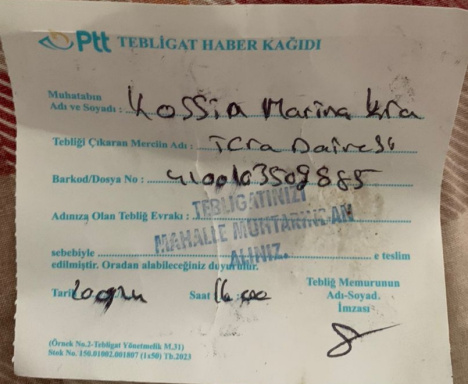 Ptt TEBLİGAT HABER KAĞIDI
Muhatabın
Adı ve Soyadı : Kossia Marina
Tebliği Çıkaran Merciin Adı : İcra Dairesi
Barkod/Dosya No :
Adınıza Olan Tebliğ Evrakı :
TEBLİGATINIZI
MAHALLE MUHTARINDAN
ALINIZ.
sebebiyle e teslim
edilmiştir. Oradan alabileceğiniz duyurulur.
Tarih
Saat 16
Tebliğ Memurunun
Adı-Soyad.
İmzası
(Örnek No.2-Tebligat Yönetmelik M.31)
Stok No. 150.01002.001807 (1x50) Tb.2023